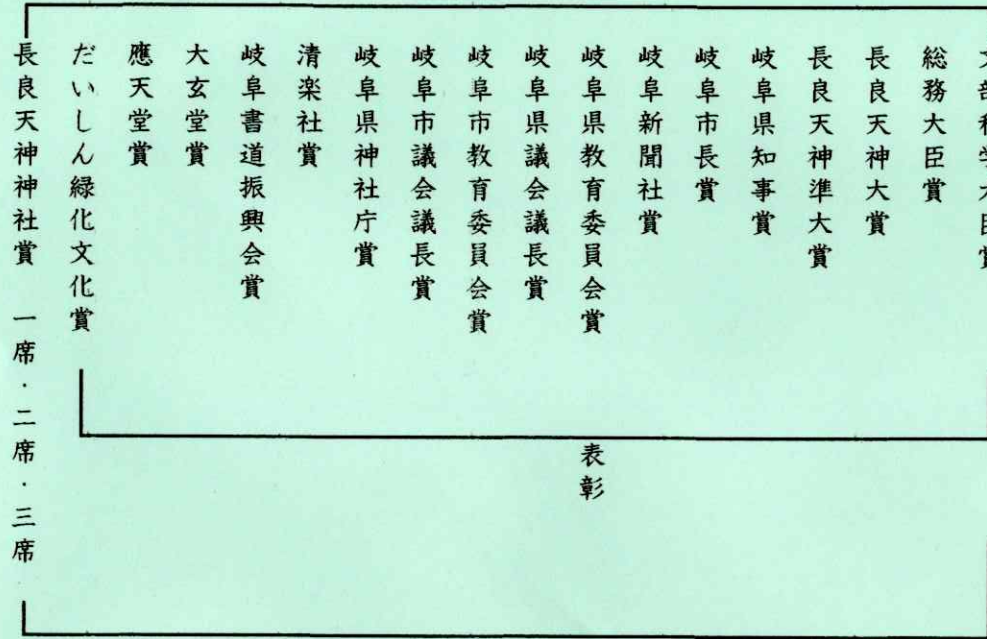 文部科学大臣賞
総務大臣賞
長良天神大賞
長良天神準大賞
岐阜県知事賞
岐阜市長賞
岐阜新聞社賞
岐阜県教育委員会賞
岐阜県議会議長賞
岐阜市教育委員会賞
岐阜市議会議長賞
岐阜県神社庁賞
清楽社賞
岐阜書道振興会賞
大玄堂賞
應天堂賞
だいしん緑化文化賞
長良天神神社賞 一席・二席・三席
表彰